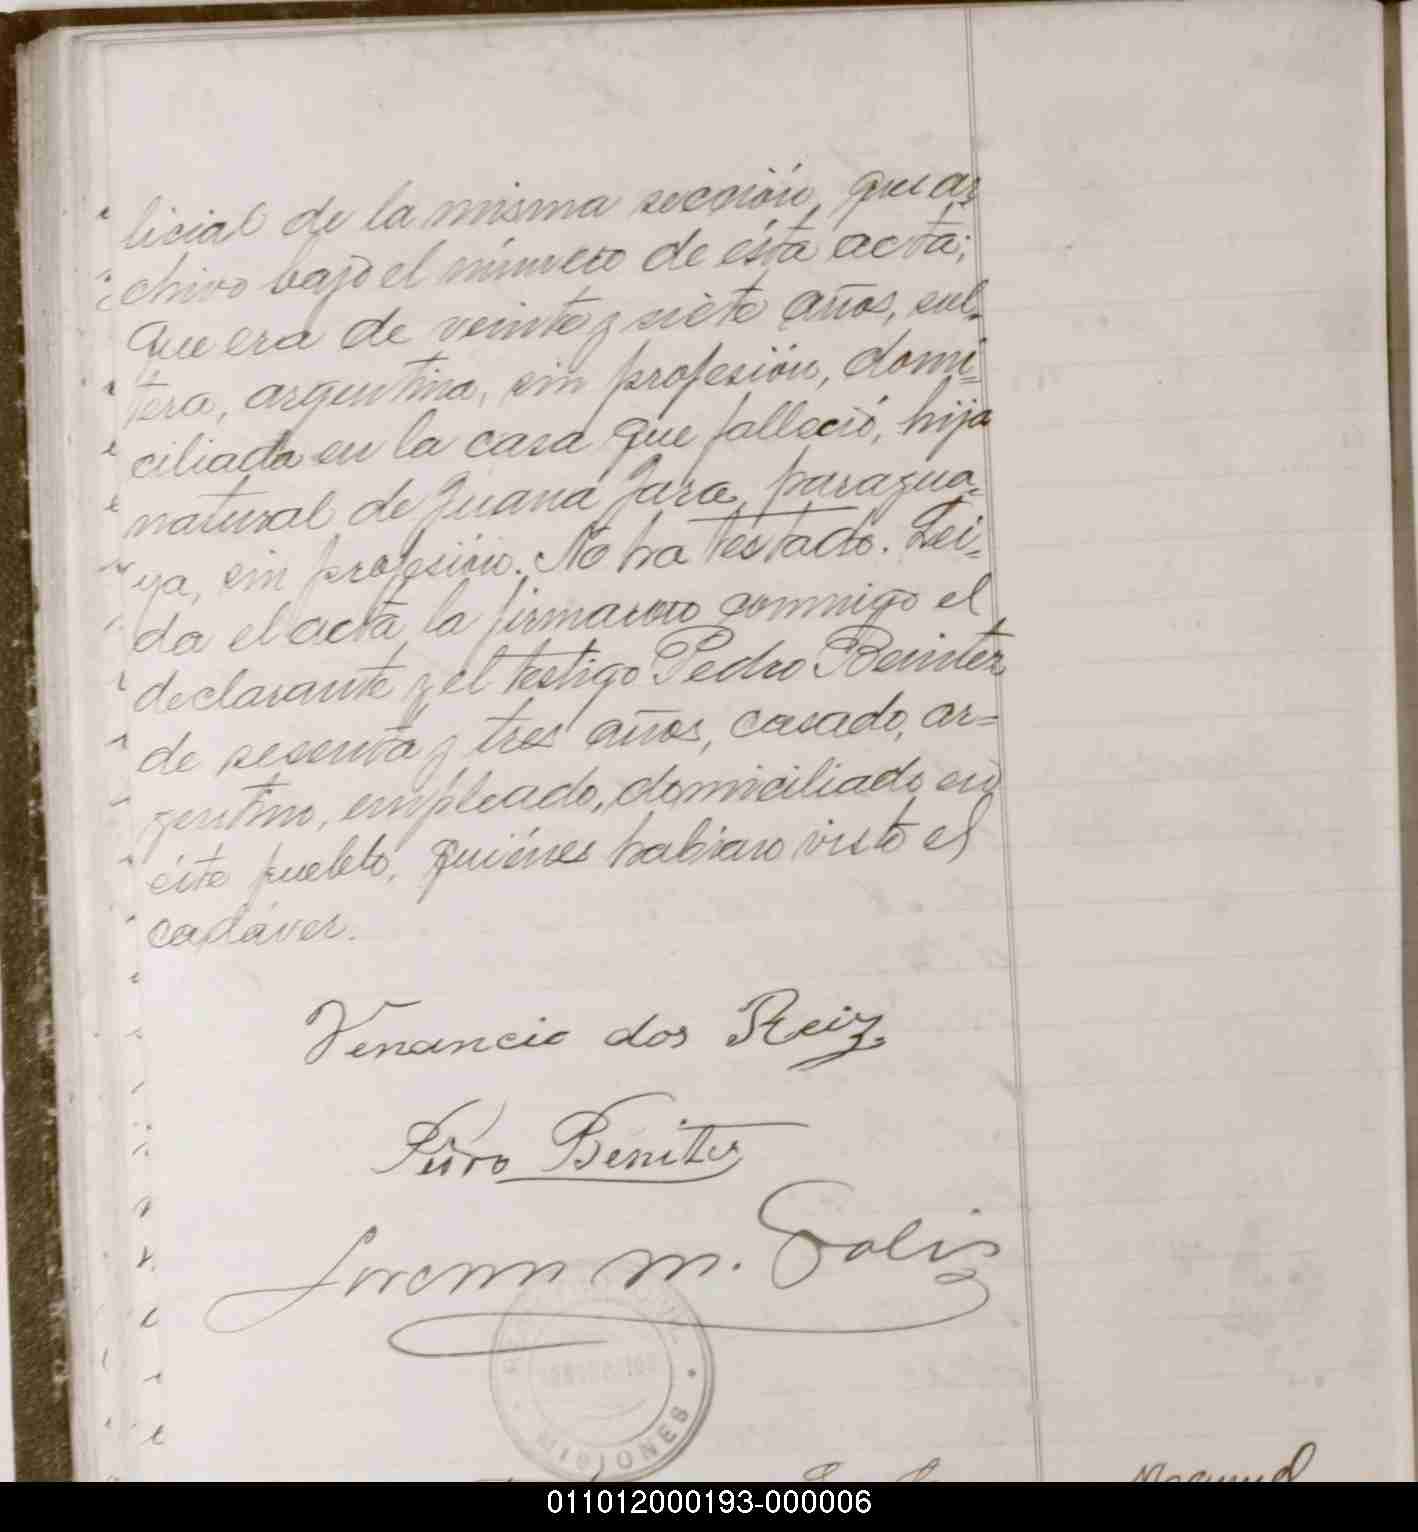 licial de la misma sección, que ar-
chivo bajo el número de ésta acta;
Que era de veinte y siete años, sol-
tera, argentina, sin profesión, domi-
ciliada en la casa que falleció, hija
natural de Juana Jara, paragua-
ya, sin profesión. No ha testado. Lei-
da el acta, la firmaron conmigo el
declarante y el testigo Pedro Benitez
de sesenta y tres años, casado, ar-
gentino, empleado, domiciliado en
éste pueblo, quiénes habian visto el
cadáver.
Venancio dos Reiz
Pedro Benitez
M. Solis
MISIONES
Manuel
011012000193-000006